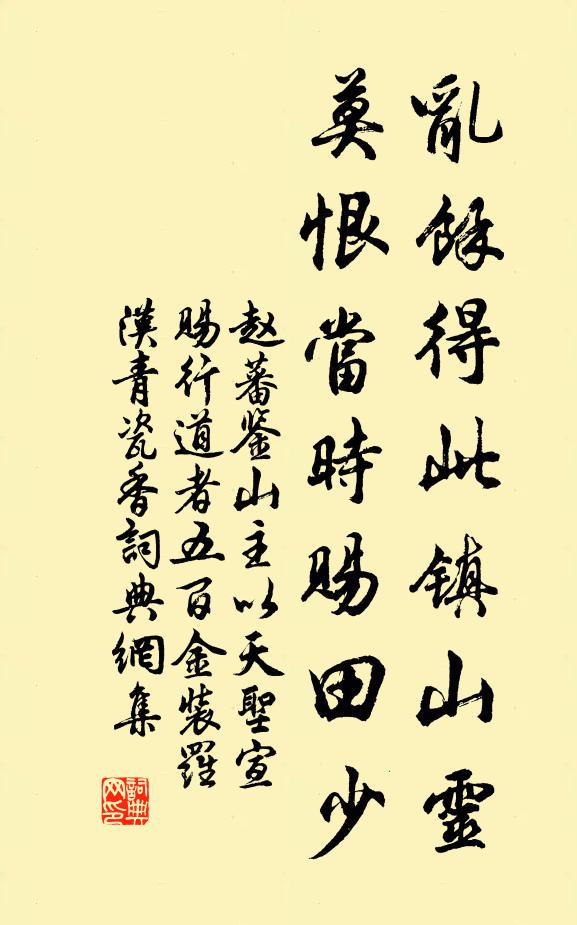 亂餘得此鎮山靈
莫恨當時賜田少
赵蕃鉴山主以天聖宣
賜行道者五百金裝羅
漢青瓷香詞典網集
詞典
网印